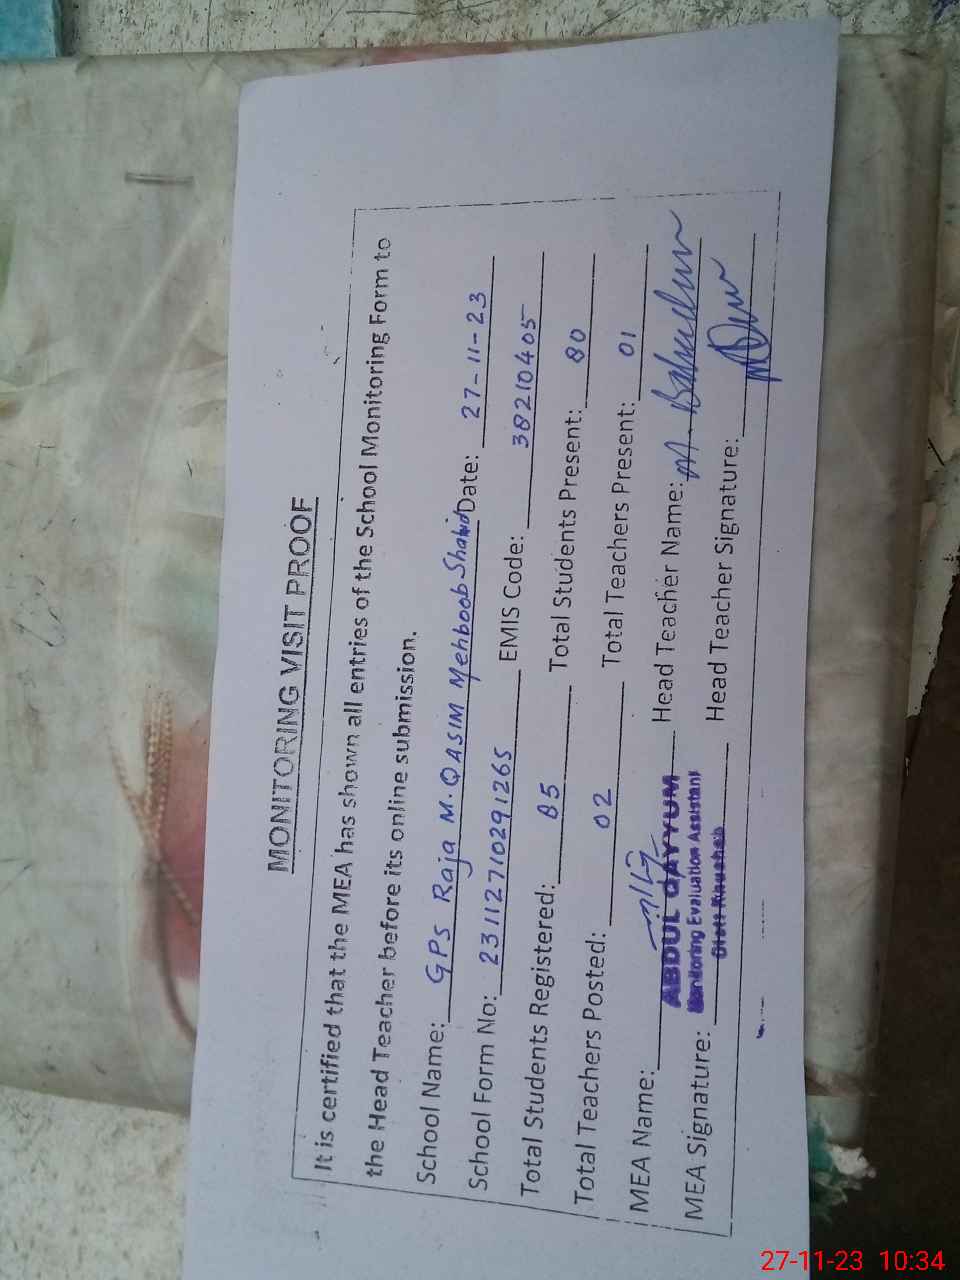 MONITORING VISIT PROOF
It is certified that the MEA has shown all entries of the School Monitoring Form to
the Head Teacher before its online submission.
School Name: GPS Raja M. QASIM Mehboob Shahid Date: 27-11-23
School Form No: 23112710291265 EMIS Code: 38210405
Total Students Registered: 85 Total Students Present: 80
Total Teachers Posted: 02 Total Teachers Present: 01
MEA Name: ABDUL QAYYUM Head Teacher Name: M.
Monitoring Evaluation Assistant
MEA Signature: Head Teacher Signature:
27-11-23 10:34